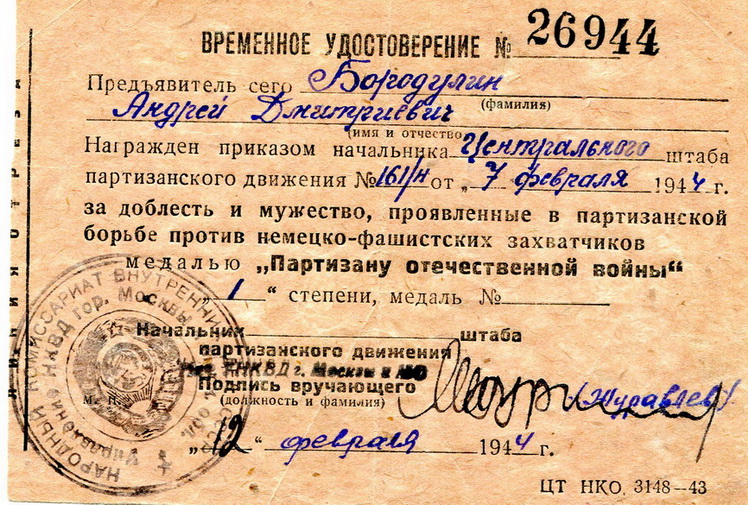 ВРЕМЕННОЕ УДОСТОВЕРЕНИЕ № 26944
Предъявитель сего Бородулин
(фамилия)
Андрей Дмитриевич
(имя и отчество
Награжден приказом начальника Центрального штаба
партизанского движения № 161/н от „7 февраля 1944 г.
за доблесть и мужество, проявленные в партизанской
борьбе против немецко-фашистских захватчиков
медалью „Партизану отечественной войны“
„1“ степени, медаль №
Начальник штаба
партизанского движения
УНКВД г. Москвы и МО
Подпись вручающего
(должность и фамилия)
(Журавлев)
М. П.
„12“ февраля 1944 г.
ЦТ НКО. 3148—43
НАРОДНЫЙ КОМИССАРИАТ ВНУТРЕННИХ
Управление НКВД гор. Москвы
ЛИНИЯ ОТРЕЗА